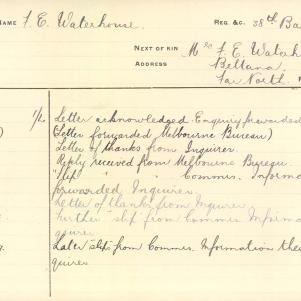 NAME F. E. Waterhouse. REG. &C. 38th Ba
NEXT OF KIN Mrs F. E. Waterh
ADDRESS Beltana.
Far North.
1/2 Letter acknowledged. Enquiry forwarded
(Letter forwarded Melbourne Bureau)
Letter of thanks from Inquirer
Reply received from Melbourne Bureau.
"Slip" " " Commis. Informa
forwarded Inquirer.
Letter of thanks from Inquirer
Further "slip" from Commis Informa
quirer
Later "slips" from Commis. Information the
quirer